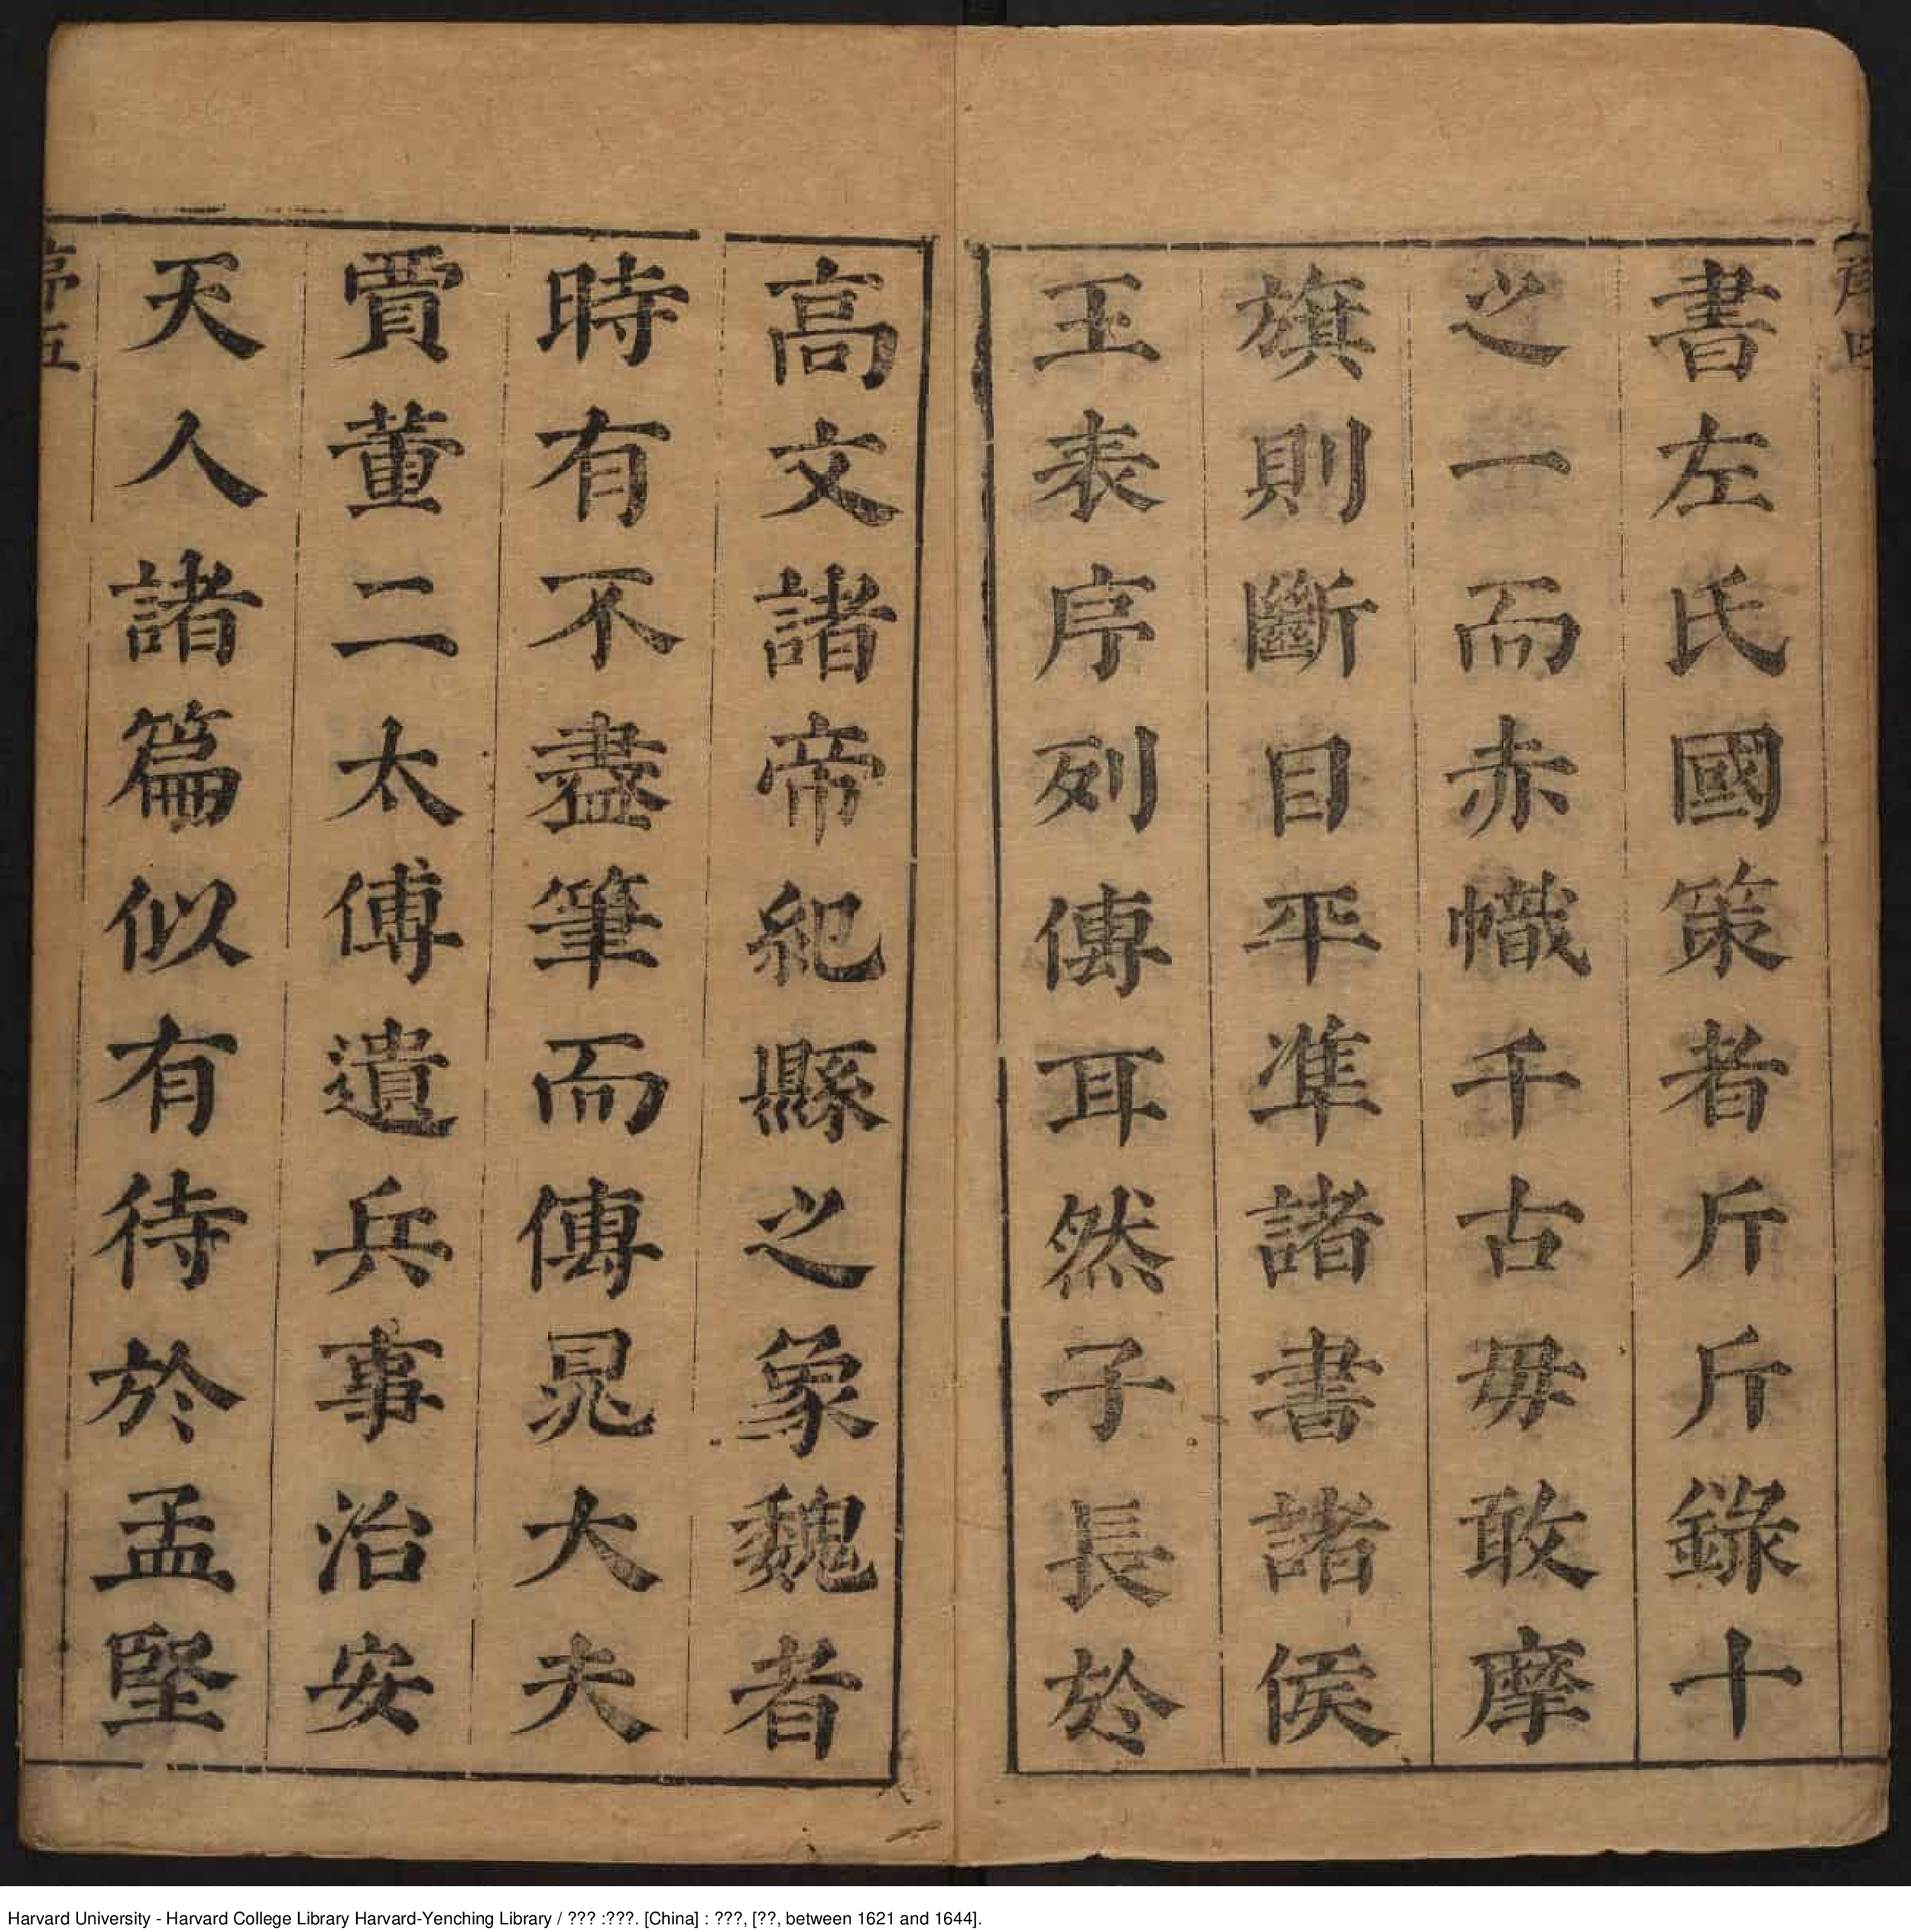 書左氏國策者斤斤錄十
之一而赤幟千古毋敢摩
旗則斷目平準諸書諸侯
王表序列傳耳然子長於
高文諸帝紀縣之象魏者
時有不盡筆而傳晁大夫
賈董二太傅遺兵事治安
天人諸篇似有待於孟堅
序五
Harvard University - Harvard College Library Harvard-Yenching Library / ??? :???. [China] : ???, [??, between 1621 and 1644].